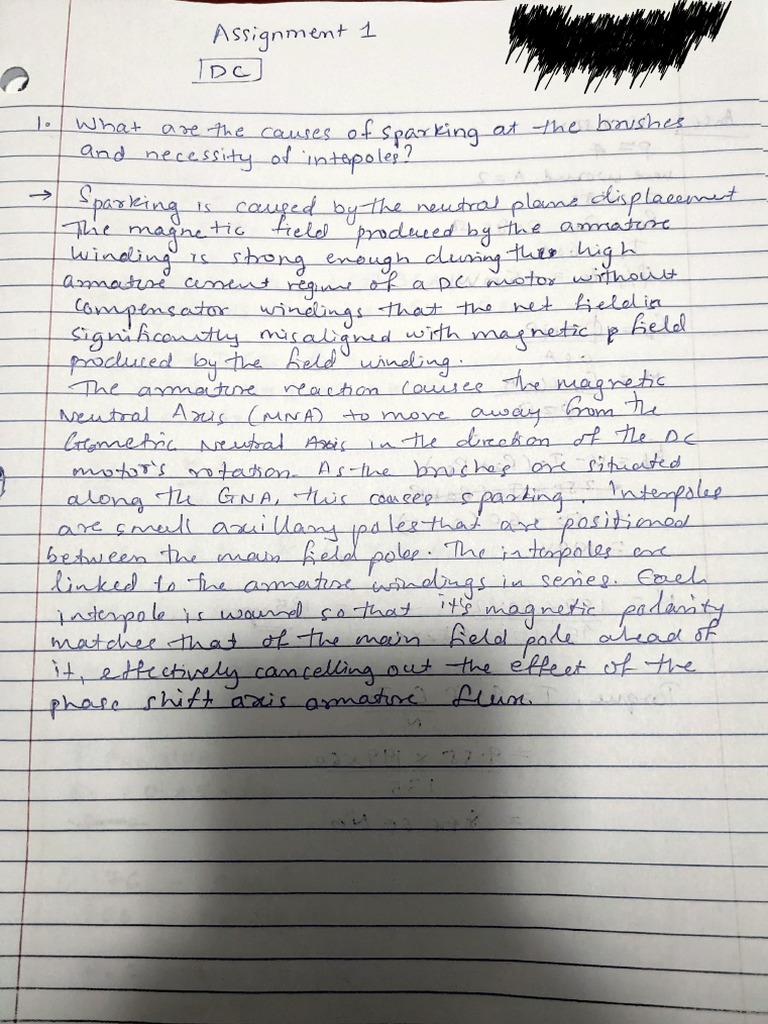 Assignment 1
DC
1. What are the causes of sparking at the brushes
and necessity of intepoles?
→ Sparking is caused by the neutral plane displacement
The magnetic field produced by the armature
winding is strong enough during the high
armature current regime of a DC motor without
compensator windings that the net field is
significantly misaligned with magnetic field
produced by the field winding.
The armature reaction causes the magnetic
Neutral Axis (MNA) to move away from the
Geometric Neutral Axis in the direction of the DC
motor's rotation. As the brushes are situated
along the GNA, this causes sparking. Interpoles
are small auxillary poles that are positioned
between the main field poles. The interpoles are
linked to the armature windings in series. Each
interpole is wound so that it's magnetic polarity
matches that of the main field pole ahead of
it, effectively cancelling out the effect of the
phase shift axis armature flux.